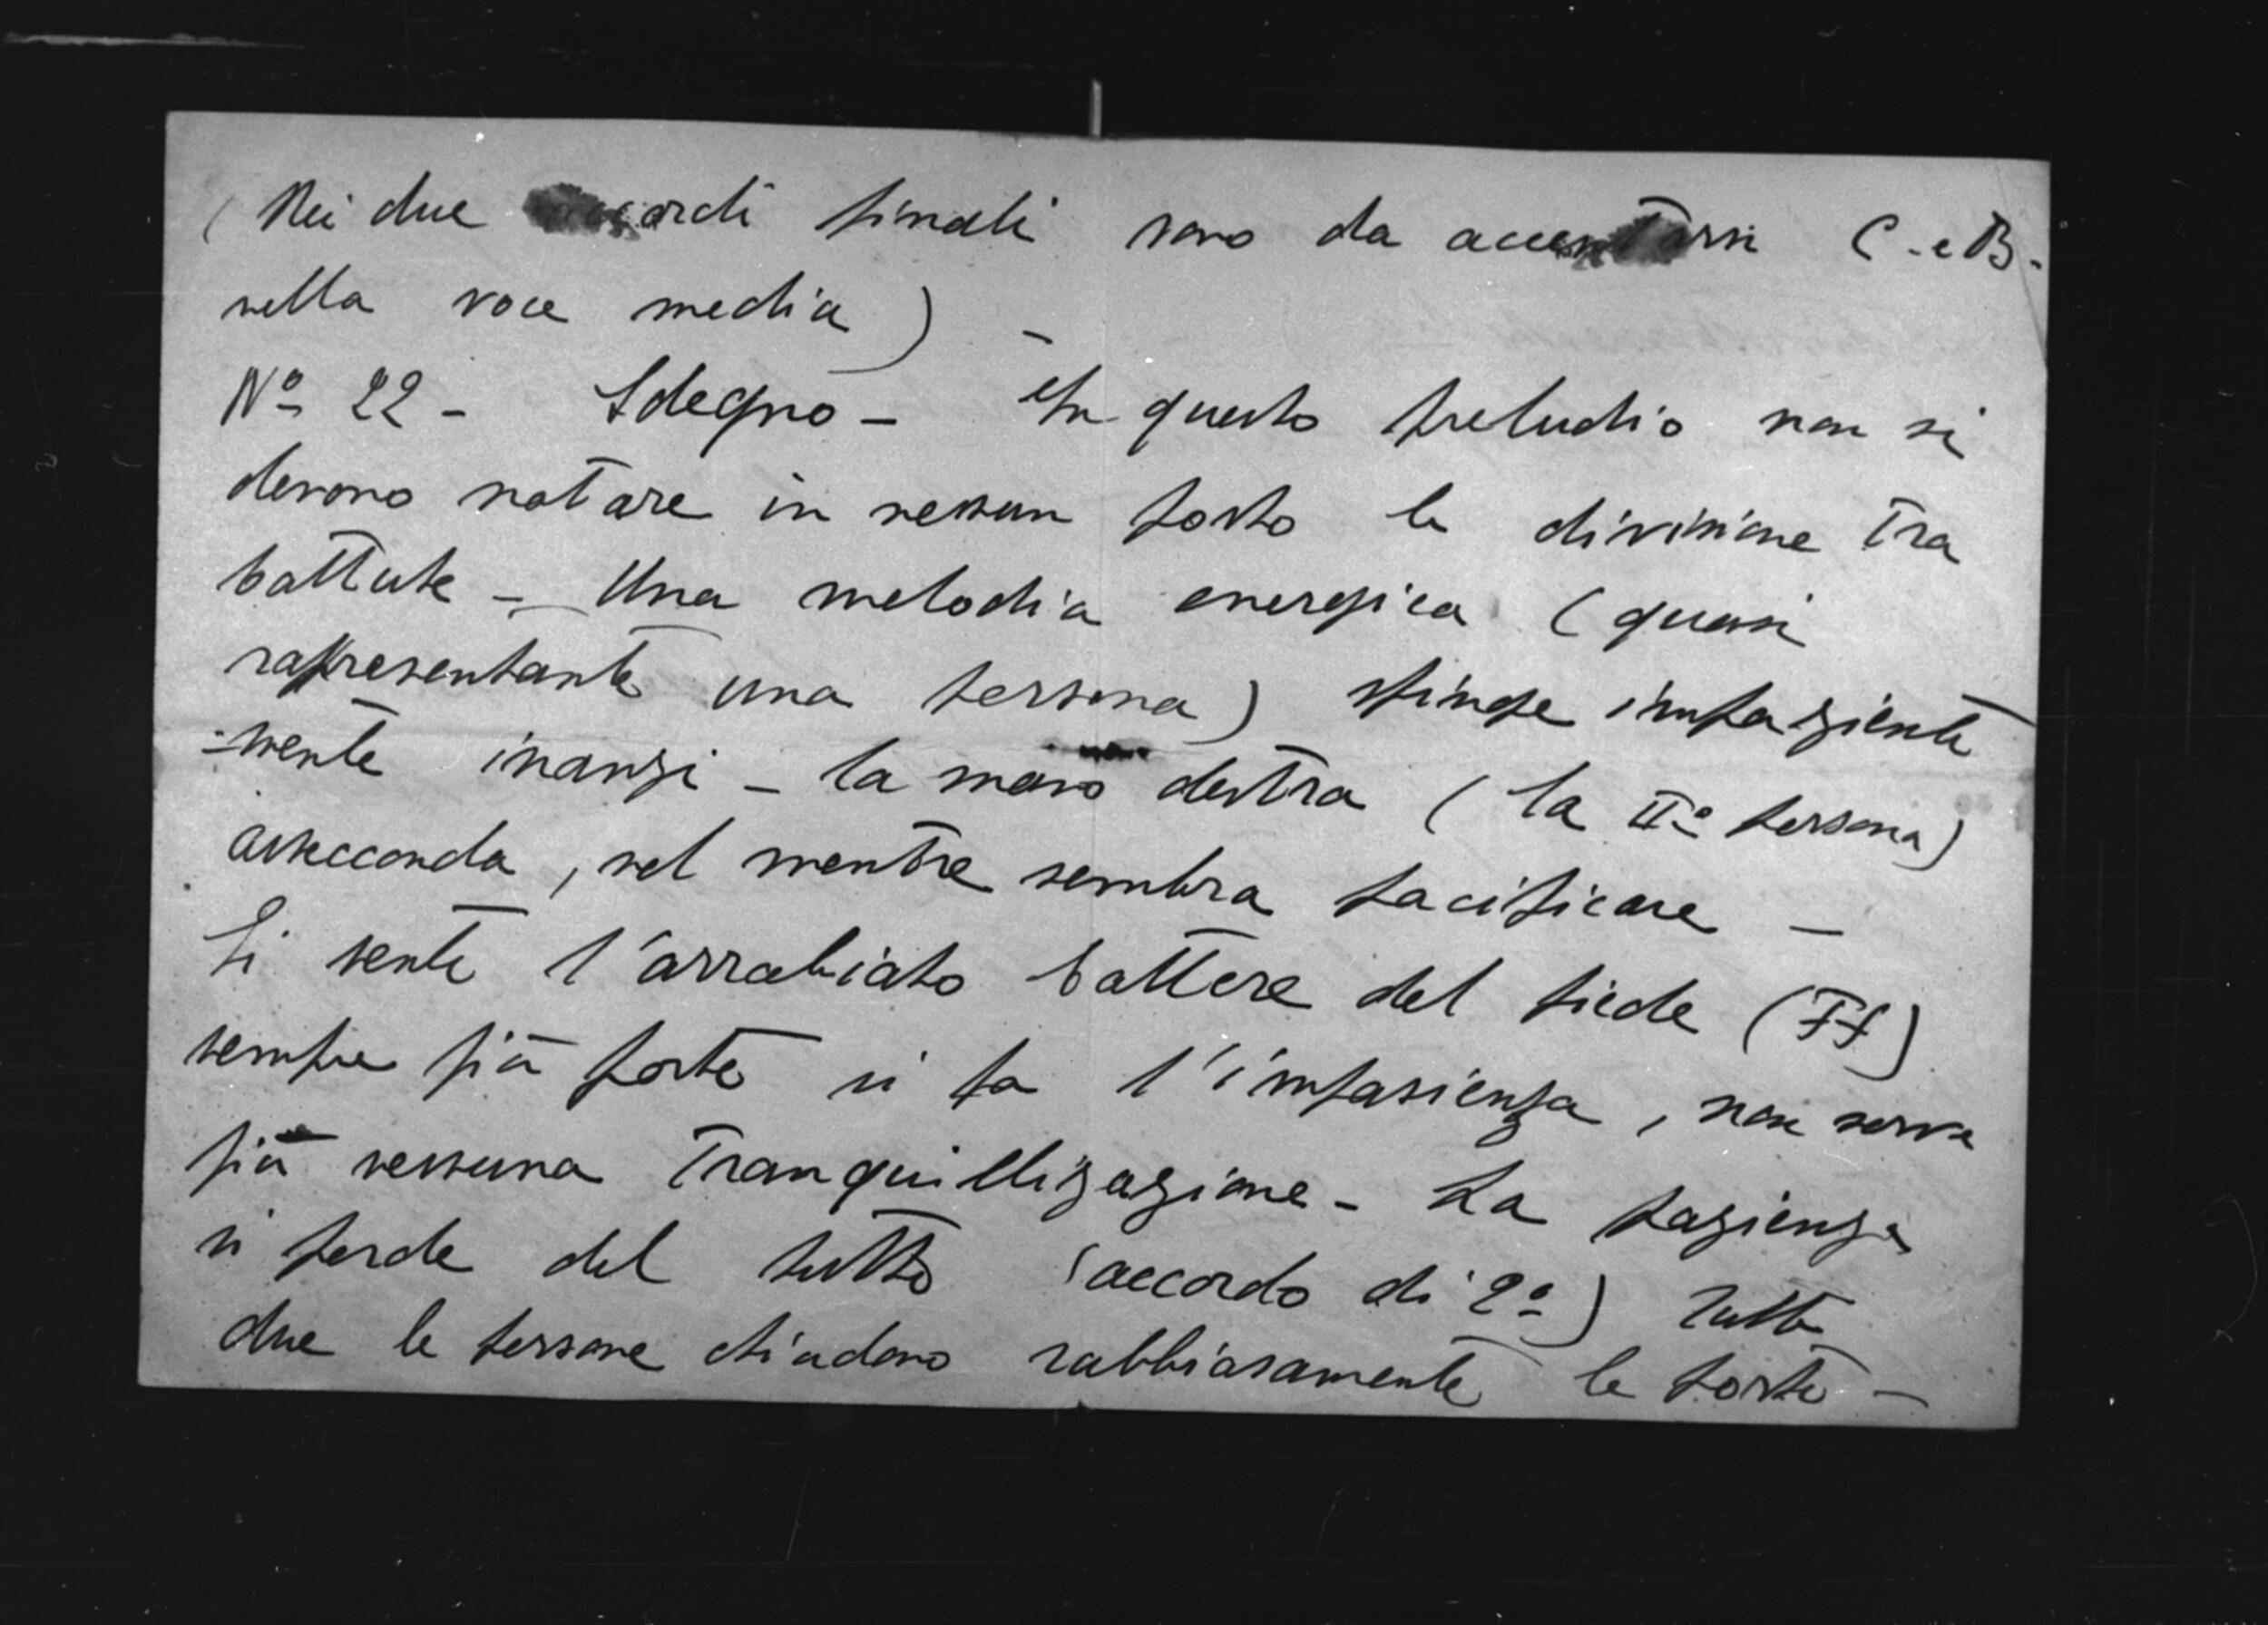 (Nei due accordi finali sono da accentarsi C. e B.
nella voce media) -
Nº 22 - Sdegno - In questo preludio non si
devono notare in nessun posto le divisione tra
battute - Una melodia energica (quasi
rappresentante una persona) spinge impaziente
-mente inanzi - la mano destra (la IIª persona)
asseconda, nel mentre sembra pacificare -
Si sente l'arrabiato battere del piede (Ff)
sempre più forte si fa l'impasienza, non serve
più nessuna tranquillizazione - La pazienza
si perde del tutto (accordo di 2ª) tutte
due le persone chiudono rabbiosamente le porte -